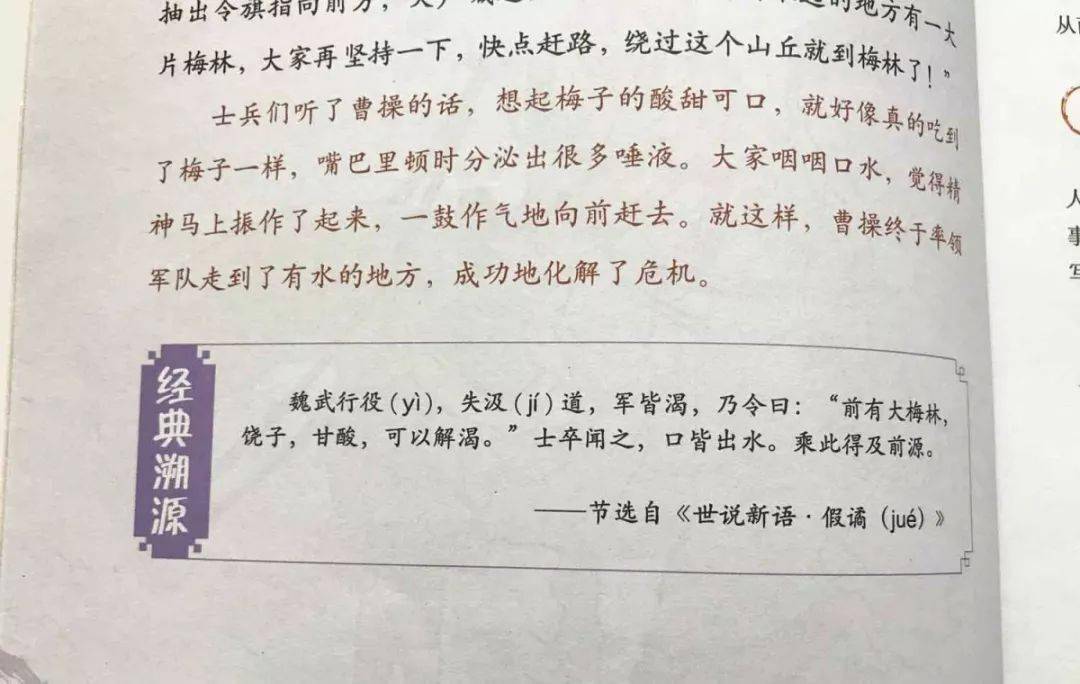 抽出令旗指向前方，大
的地方有一大
片梅林，大家再坚持一下，快点赶路，绕过这个山丘就到梅林了！”
士兵们听了曹操的话，想起梅子的酸甜可口，就好像真的吃到
了梅子一样，嘴巴里顿时分泌出很多唾液。大家咽咽口水，觉得精
神马上振作了起来，一鼓作气地向前赶去。就这样，曹操终于率领
军队走到了有水的地方，成功地化解了危机。
经典溯源
魏武行役(yì)，失汲(jí)道，军皆渴，乃令曰：“前有大梅林，
饶子，甘酸，可以解渴。”士卒闻之，口皆出水。乘此得及前源。
——节选自《世说新语·假谲(jué)》
从
人
事
写